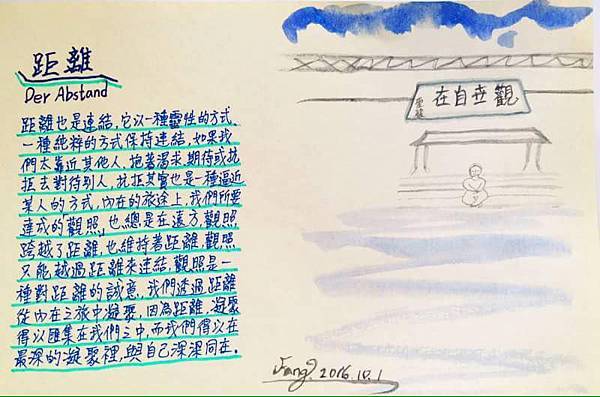 距離
Der Abstand
距離也是連結,它以一種靈性的方式、
一種純粹的方式保持連結,如果我
們太靠近其他人,抱著渴求、期待或抗
拒去對待別人,抗拒其實也是一種逼近
某人的方式,內在的旅途上,我們所要
達成的「觀照」,也總是在遠方,觀照
跨越了距離,也維持著距離,觀照
只能越過距離來連結,觀照是一
種對距離的誠意,我們透過距離
從內在之旅中凝聚,因為距離,凝聚
得以匯集在我們之中,而我們得以在
最深的凝聚裡,與自己深深同在。
在自世觀
Fang 2016.10.1